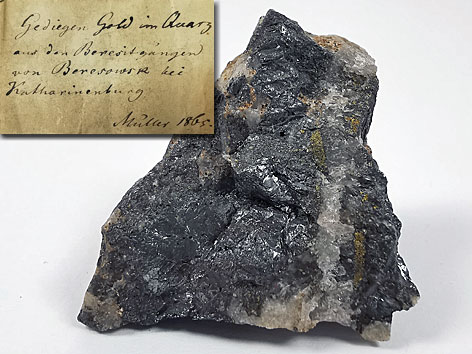 Gediegen Gold im Quarz
aus den Beresitgängen
von Beresowsk bei
Katharinenburg
Müller 1865.